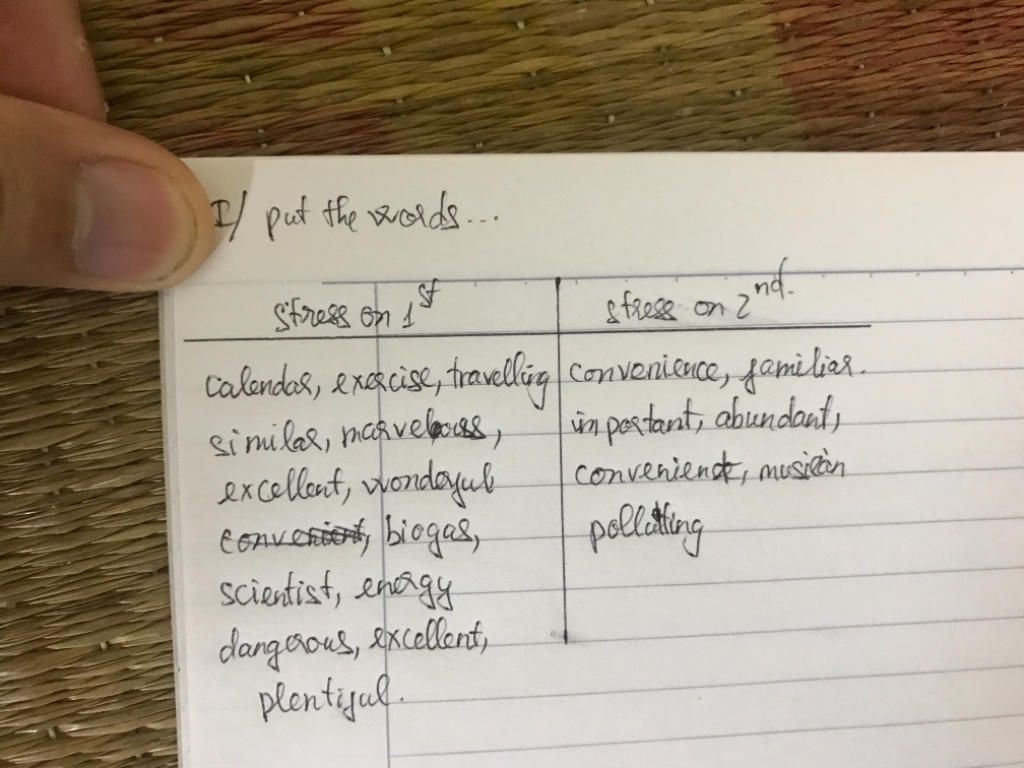 I/ put the words...
stress on 1st stress on 2nd.
calendar, exercise, travelling convenience, familiar.
similar, marvelous, important, abundant,
excellent, wonderful convenient, musician
convenient, biogas, polluting
scientist, energy
dangerous, excellent,
plentiful.